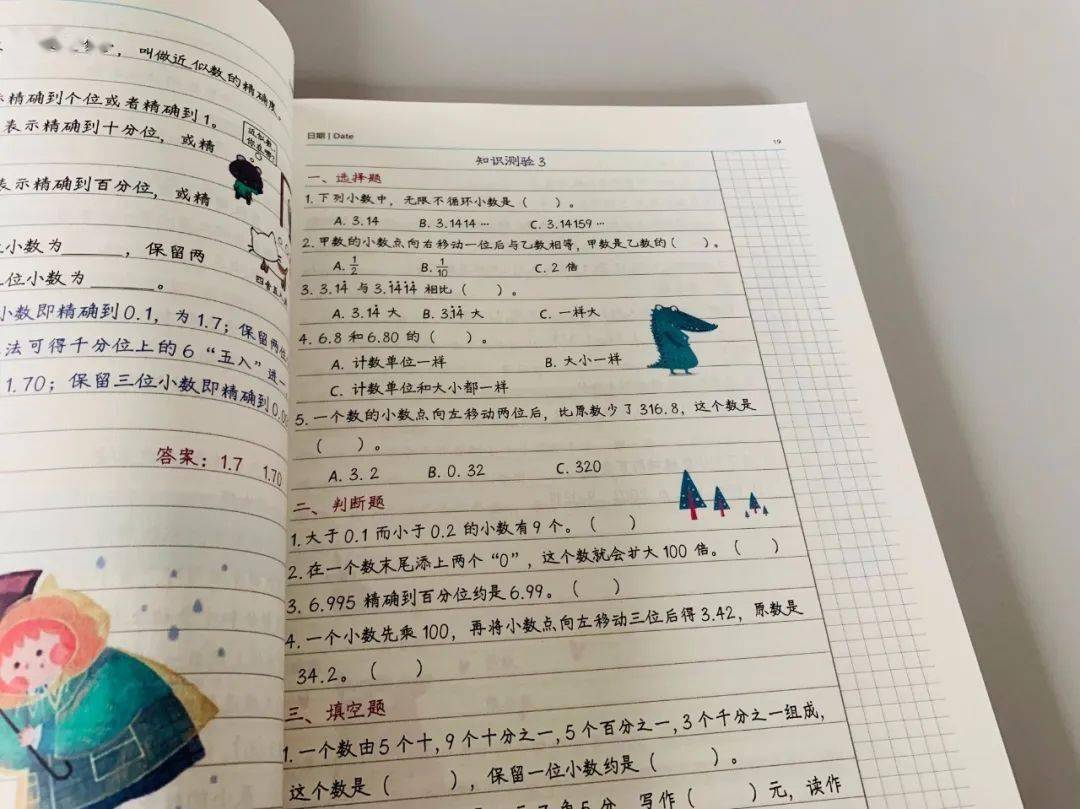 ，叫做近似数的精确度。
精确到个位或者精确到1。
表示精确到十分位，或精
近似数，
你在哪？
表示精确到百分位，或精
小数为______，保留两
位小数为______。
四舍五入
小数即精确到0.1，为1.7；保留两位
法可得千分位上的6“五入”进一
1.70；保留三位小数即精确到0.0
答案：1.7 1.70
日期 | Date
19
知识测验3
一、选择题
1.下列小数中，无限不循环小数是（ ）。
A. 3.14 B. 3.1414… C. 3.14159…
2.甲数的小数点向右移动一位后与乙数相等，甲数是乙数的（ ）。
A. 1/2 B. 1/10 C. 2 倍
3. 3.14̇ 与 3.1̇41̇4̇ 相比（ ）。
A. 3.14̇ 大 B. 3.1̇4̇ 大 C. 一样大
4. 6.8 和 6.80 的（ ）。
A. 计数单位一样 B. 大小一样
C. 计数单位和大小都一样
5. 一个数的小数点向左移动两位后，比原数少了316.8，这个数是
（ ）。
A. 3.2 B. 0.32 C. 320
二、判断题
1.大于0.1而小于0.2的小数有9个。（ ）
2.在一个数末尾添上两个“0”，这个数就会扩大100倍。（ ）
3. 6.995 精确到百分位约是6.99。（ ）
4. 一个小数先乘100，再将小数点向左移动三位后得3.42，原数是
34.2。（ ）
三、填空题
1.一个数由5个十，9个十分之一，5个百分之一，3个千分之一组成，
这个数是（ ），保留一位小数约是（ ）。
元7角5分，写作（ ）元，读作